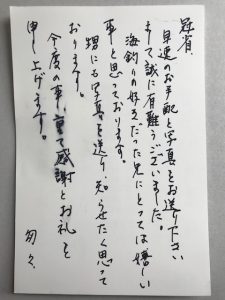 冠省
早速のお手配と写真をお送り下さい
まして誠に有難うございました。
海釣りの好きだった兄にとっては嬉しい
事と思っております。
甥にも写真を送り、知らせたく思って
おります。
今度の事、重ねて感謝とお礼を
申し上げます。
匆々